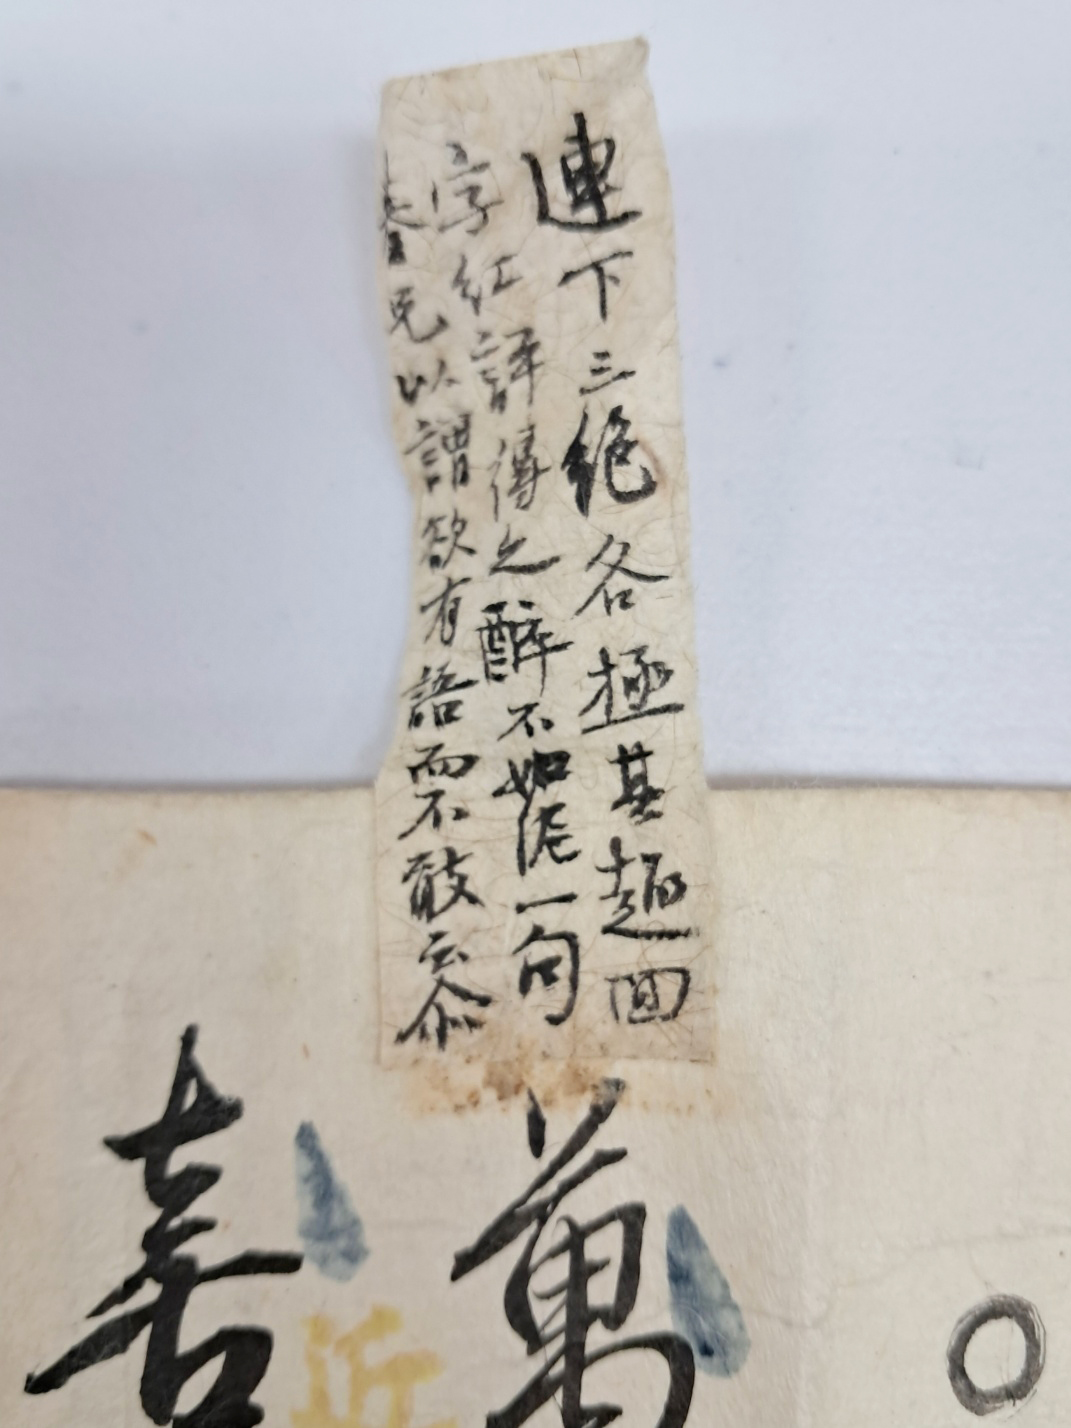 連下三絶各極其趣回
字紅評得之醉不如泥一句
春兄以謂欲有語而不敢云尒
萬
喜
近